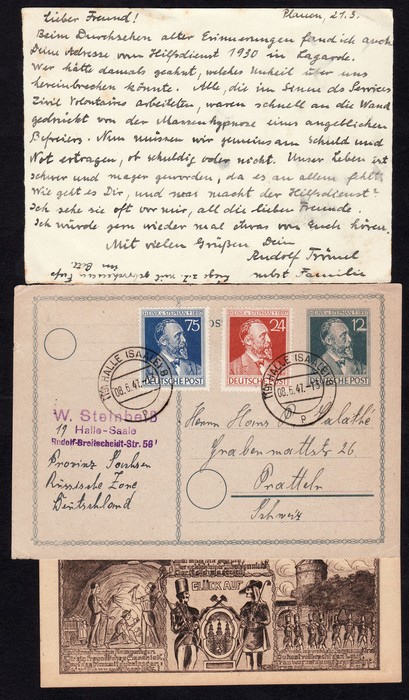 Lieber Freund! Plauen, 21.3.
Beim Durchsehen alter Erinnerungen fand ich auch
Deine Adresse vom Hilfsdienst 1930 in Lagarde.
Wer hätte damals geahnt, welches Unheil über uns
hereinbrechen könnte. Alle, die im Sinne des Services
Zivil Volontaires arbeiteten, waren schnell an die Wand
gedrückt von der Massenhypnose eines angeblichen
Befreiers. Nun müssen wir gemeinsam Schuld und
Not ertragen, ob schuldig oder nicht. Unser Leben ist
schwer und mager geworden, da es an allem fehlt.
Wie geht es Dir, und was macht der Hilfsdienst?
Ich sehe sie oft vor mir, all die lieben Freunde.
Ich würde gern wieder mal etwas von Euch hören.
Mit vielen Grüßen Dein
Rudolf Trömel
nebst Familie
HEINR. v. STEPHAN † 1897
75
DEUTSCHE POST
HEINR. v. STEPHAN † 1897
24
DEUTSCHE POST
HEINR. v. STEPHAN † 1897
12
DEUTSCHE POST
(19) HALLE (SAALE) 8
08.6.47.
(19) HALLE (SAALE)
08.6.47.
W. Steinbeiß
19 Halle-Saale
Rudolf-Breitscheidt-Str. 56
Provinz Sachsen
Russische Zone
Deutschland
Herrn
Grabenmattstr 26
Pratteln
Schweiz
GLÜCK AUF